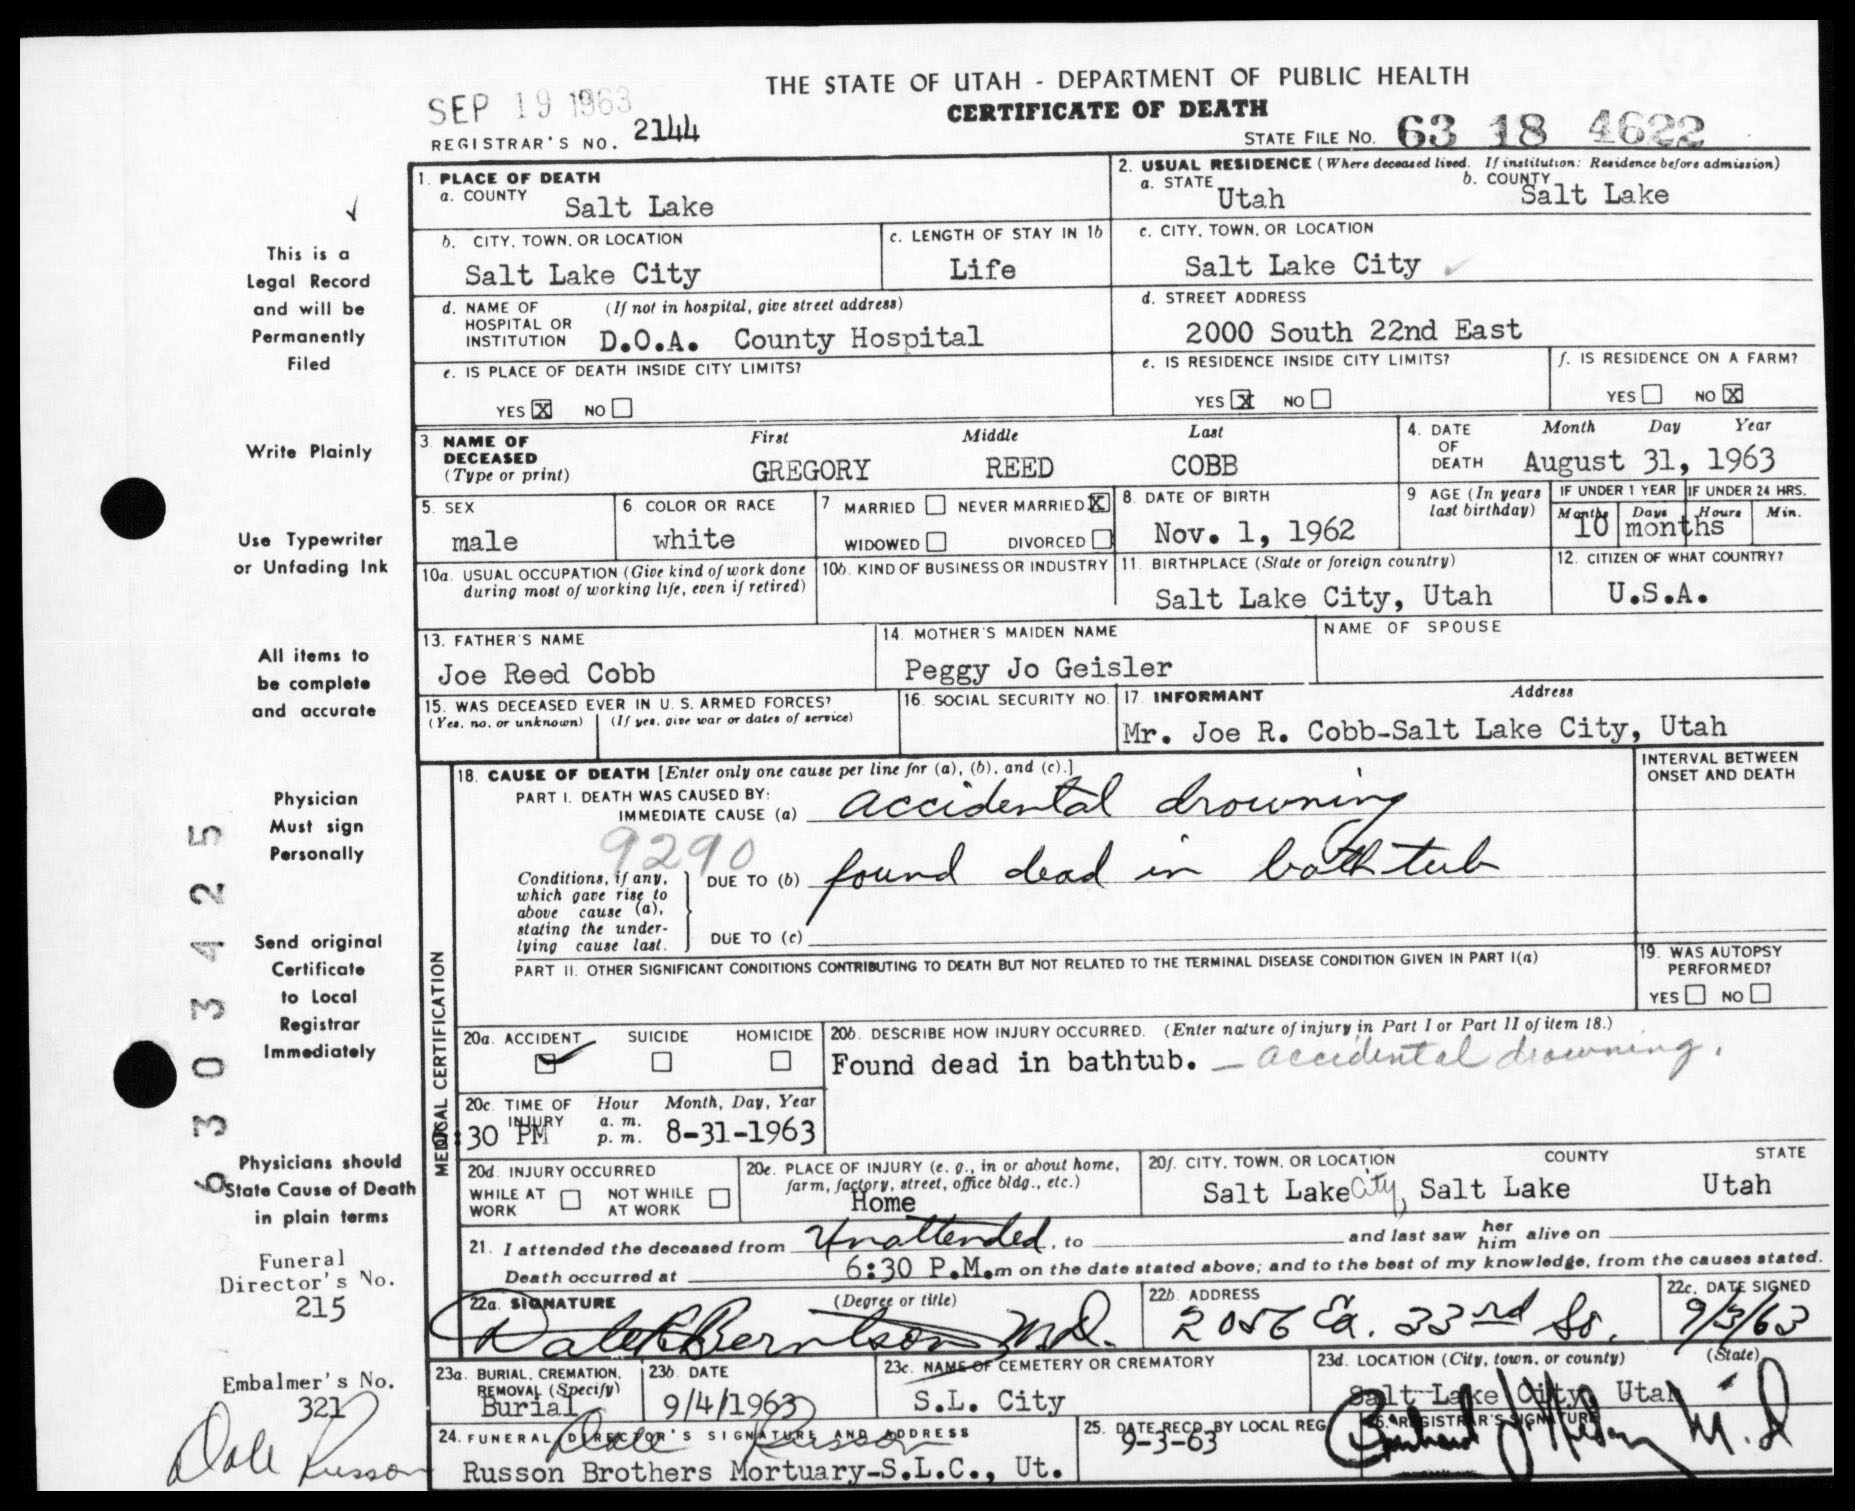 THE STATE OF UTAH - DEPARTMENT OF PUBLIC HEALTH
CERTIFICATE OF DEATH
SEP 19 1963
REGISTRAR'S NO. 2144
STATE FILE NO. 63 18 4622
This is a
Legal Record
and will be
Permanently
Filed
Write Plainly
Use Typewriter
or Unfading Ink
All items to
be complete
and accurate
Physician
Must sign
Personally
Send original
Certificate
to Local
Registrar
Immediately
Physicians should
State Cause of Death
in plain terms
Funeral
Director's No.
215
Embalmer's No.
321
Dale Russon
6303425
1. PLACE OF DEATH
a. COUNTY Salt Lake
b. CITY, TOWN, OR LOCATION
Salt Lake City
c. LENGTH OF STAY IN 1b
Life
d. NAME OF HOSPITAL OR INSTITUTION (If not in hospital, give street address)
D.O.A. County Hospital
e. IS PLACE OF DEATH INSIDE CITY LIMITS?
YES X NO
2. USUAL RESIDENCE (Where deceased lived. If institution: Residence before admission)
a. STATE Utah b. COUNTY Salt Lake
c. CITY, TOWN, OR LOCATION
Salt Lake City
d. STREET ADDRESS
2000 South 22nd East
e. IS RESIDENCE INSIDE CITY LIMITS?
YES X NO
f. IS RESIDENCE ON A FARM?
YES NO X
3. NAME OF DECEASED (Type or print)
First Middle Last
GREGORY REED COBB
4. DATE OF DEATH Month Day Year
August 31, 1963
5. SEX
male
6 COLOR OR RACE
white
7 MARRIED NEVER MARRIED X
WIDOWED DIVORCED
8. DATE OF BIRTH
Nov. 1, 1962
9 AGE (In years last birthday)
IF UNDER 1 YEAR IF UNDER 24 HRS.
Months Days Hours Min.
10 months
10a. USUAL OCCUPATION (Give kind of work done during most of working life, even if retired)
10b. KIND OF BUSINESS OR INDUSTRY
11. BIRTHPLACE (State or foreign country)
Salt Lake City, Utah
12. CITIZEN OF WHAT COUNTRY?
U.S.A.
13. FATHER'S NAME
Joe Reed Cobb
14. MOTHER'S MAIDEN NAME
Peggy Jo Geisler
NAME OF SPOUSE
15. WAS DECEASED EVER IN U.S. ARMED FORCES?
(Yes, no, or unknown) (If yes, give war or dates of service)
16. SOCIAL SECURITY NO.
17. INFORMANT Address
Mr. Joe R. Cobb-Salt Lake City, Utah
MEDICAL CERTIFICATION
18. CAUSE OF DEATH [Enter only one cause per line for (a), (b), and (c).]
INTERVAL BETWEEN ONSET AND DEATH
PART I. DEATH WAS CAUSED BY:
IMMEDIATE CAUSE (a) accidental drowning
9290
Conditions, if any, which gave rise to above cause (a), stating the underlying cause last.
DUE TO (b) found dead in bathtub
DUE TO (c)
PART II. OTHER SIGNIFICANT CONDITIONS CONTRIBUTING TO DEATH BUT NOT RELATED TO THE TERMINAL DISEASE CONDITION GIVEN IN PART I(a)
19. WAS AUTOPSY PERFORMED?
YES NO
20a. ACCIDENT SUICIDE HOMICIDE
20b. DESCRIBE HOW INJURY OCCURRED. (Enter nature of injury in Part I or Part II of item 18.)
Found dead in bathtub. - accidental drowning.
20c. TIME OF INJURY Hour a.m. p.m. Month, Day, Year
:30 PM 8-31-1963
20d. INJURY OCCURRED
WHILE AT WORK NOT WHILE AT WORK
20e. PLACE OF INJURY (e. g., in or about home, farm, factory, street, office bldg., etc.)
Home
20f. CITY, TOWN, OR LOCATION COUNTY STATE
Salt Lake City, Salt Lake Utah
21. I attended the deceased from Unattended, to and last saw her him alive on
Death occurred at 6:30 P.M. m on the date stated above; and to the best of my knowledge, from the causes stated.
22a. SIGNATURE (Degree or title)
M.D.
22b. ADDRESS
2056 Ea. 33rd So.
22c. DATE SIGNED
9/3/63
23a. BURIAL, CREMATION, REMOVAL (Specify)
Burial
23b. DATE
9/4/1963
23c. NAME OF CEMETERY OR CREMATORY
S.L. City
23d. LOCATION (City, town, or county) (State)
Salt Lake City Utah
24. FUNERAL DIRECTOR'S SIGNATURE AND ADDRESS
Dale Russon
Russon Brothers Mortuary-S.L.C., Ut.
25. DATE RECD. BY LOCAL REG.
9-3-63
26. REGISTRAR'S SIGNATURE
M.D